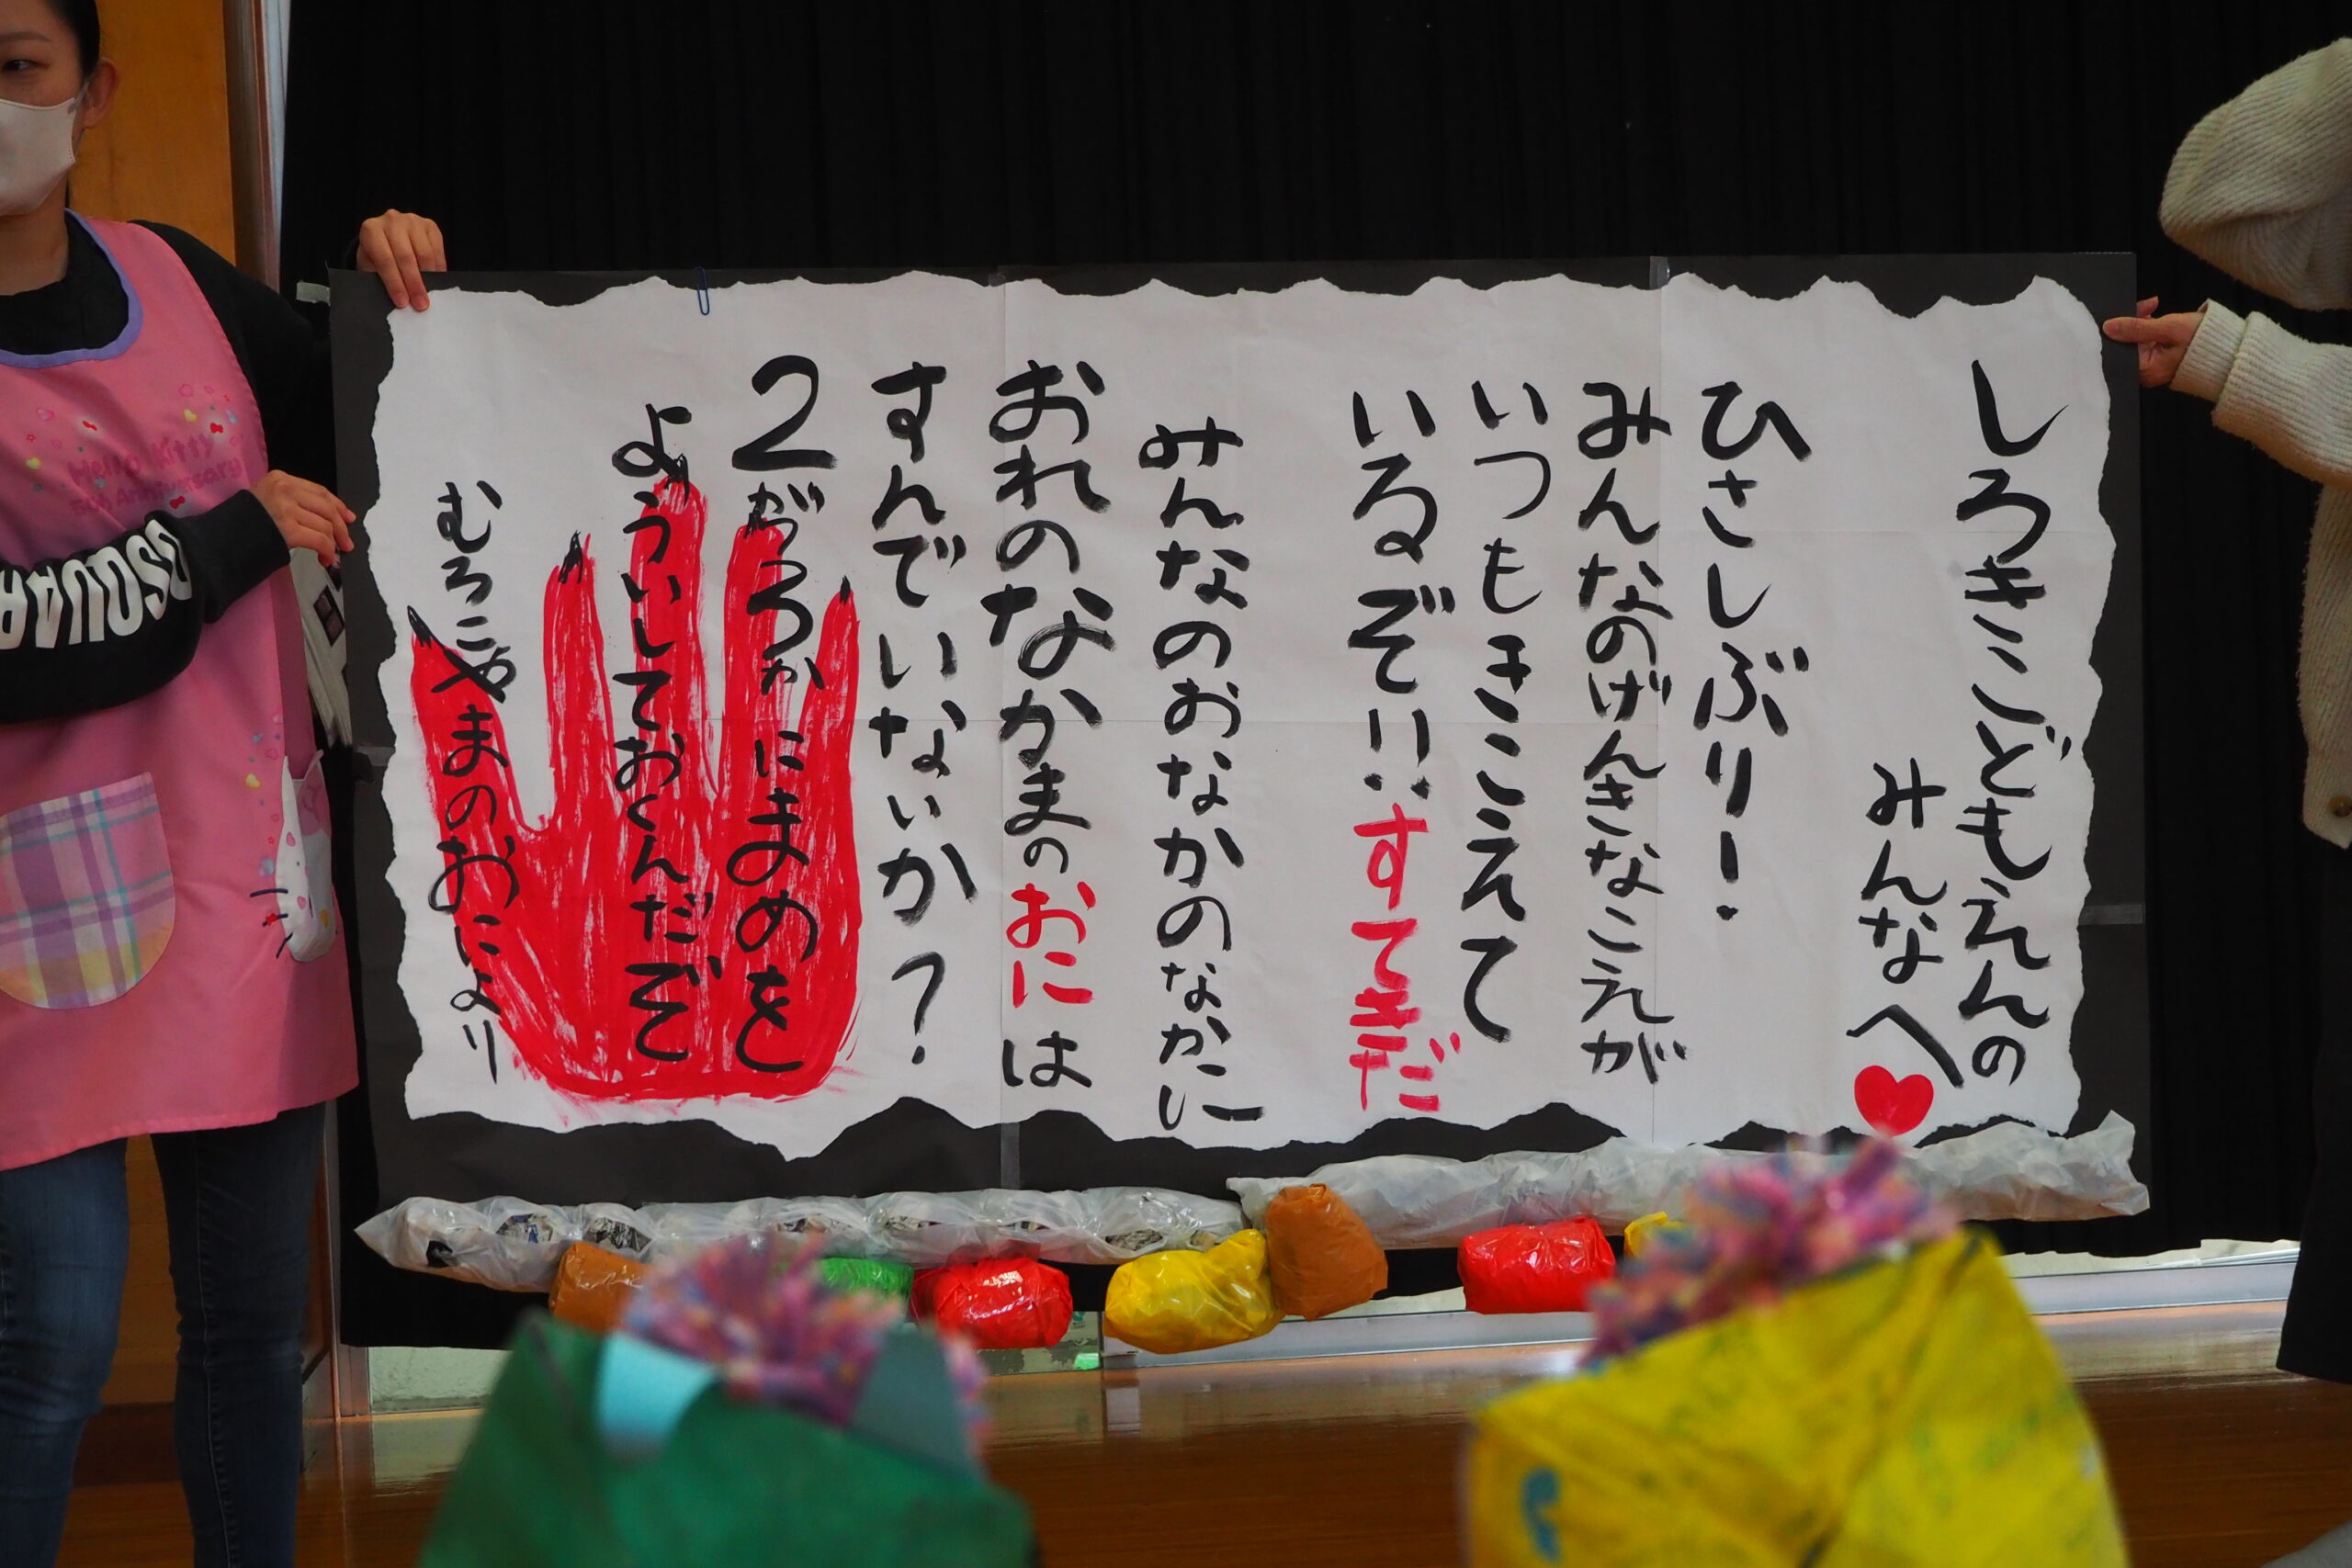 しろきこどもえんの
みんなへ
ひさしぶり!
みんなのげんきなこえが
いつもきこえて
いるぞ!!すてきだ
みんなのおなかのなかに
おれのなかまのおには
すんでいないか?
2がつ3かにまめを
よういしておくんだぞ
むろこやまのおにより
Hello Kitty
50th Anniversary